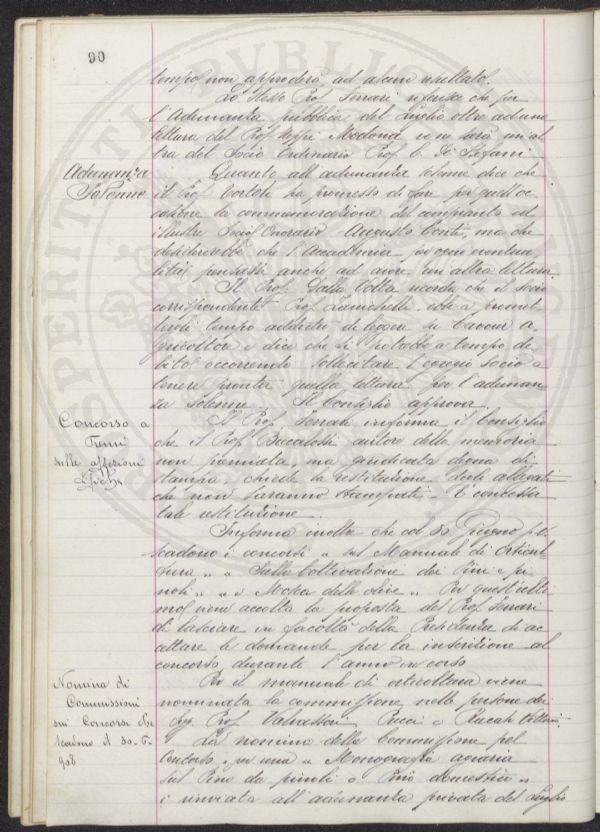 90
tempo non approderà ad alcun risultato.
Lo stesso Prof. Ferrari riferisce che per
l'Adunanza pubblica del Luglio oltre ad una
lettura del Prof. Modona ve ne sarà un'al
tra del Socio Ordinario Prof. C. De Stefani
Adunanza
Solenne
Quanto all'adunanza solenne dice che
il Prof. ha promesso di fare per quell'oc
casione la commemorazione del compianto ed
illustre Socio Onorario Augusto Conti, ma che
desidererebbe che l'Accademia, per ogni eventua
lità pensasse anche ad avere un'altra lettura.
Il Prof. Dalla Volta ricorda che il socio
corrispondente Prof. ebbe a promet
tergli tempo addietro di leggere su Cavour a-
gricoltore e dice che si potrebbe a tempo de
bito, occorrendo sollecitare l'egregio socio a
tenere pronta quella lettura per l'adunan
za solenne. Il Consiglio approva.
Concorso a
Premi
sulle affezioni
Il Prof. Ferrari informa il Consiglio
che il Prof. autore della memoria
non premiata, ma giudicata degna di
stampa, chiede la restituzione degli allegati
che non saranno stampati. È concessa
tale restituzione.
Informa inoltre che col 30 Giugno p.v.
scadono i concorsi " sul Manuale di Orticul
tura " " Sulla Coltivazione dei Pini e pi
noli " " e Mosca delle olive " Per quest'ulti
mo vien accolta la proposta del Prof. Ferrari
di lasciare in facoltà della Presidenza di ac
cettare le domande per la inscrizione al
concorso durante l'anno in corso
Nomina di
Commissioni
sui Concorsi che
scadono il 30-6-
908
Per il manuale di orticoltura viene
nominata la commissione nelle persone dei
Sigg. Prof. Valvassori Pucci e
La nomina della Commissione pel
Concorso per una " Monografia agraria
sul Pino da pinoli o Pino domestico "
è rinviata all'adunanza privata del Luglio